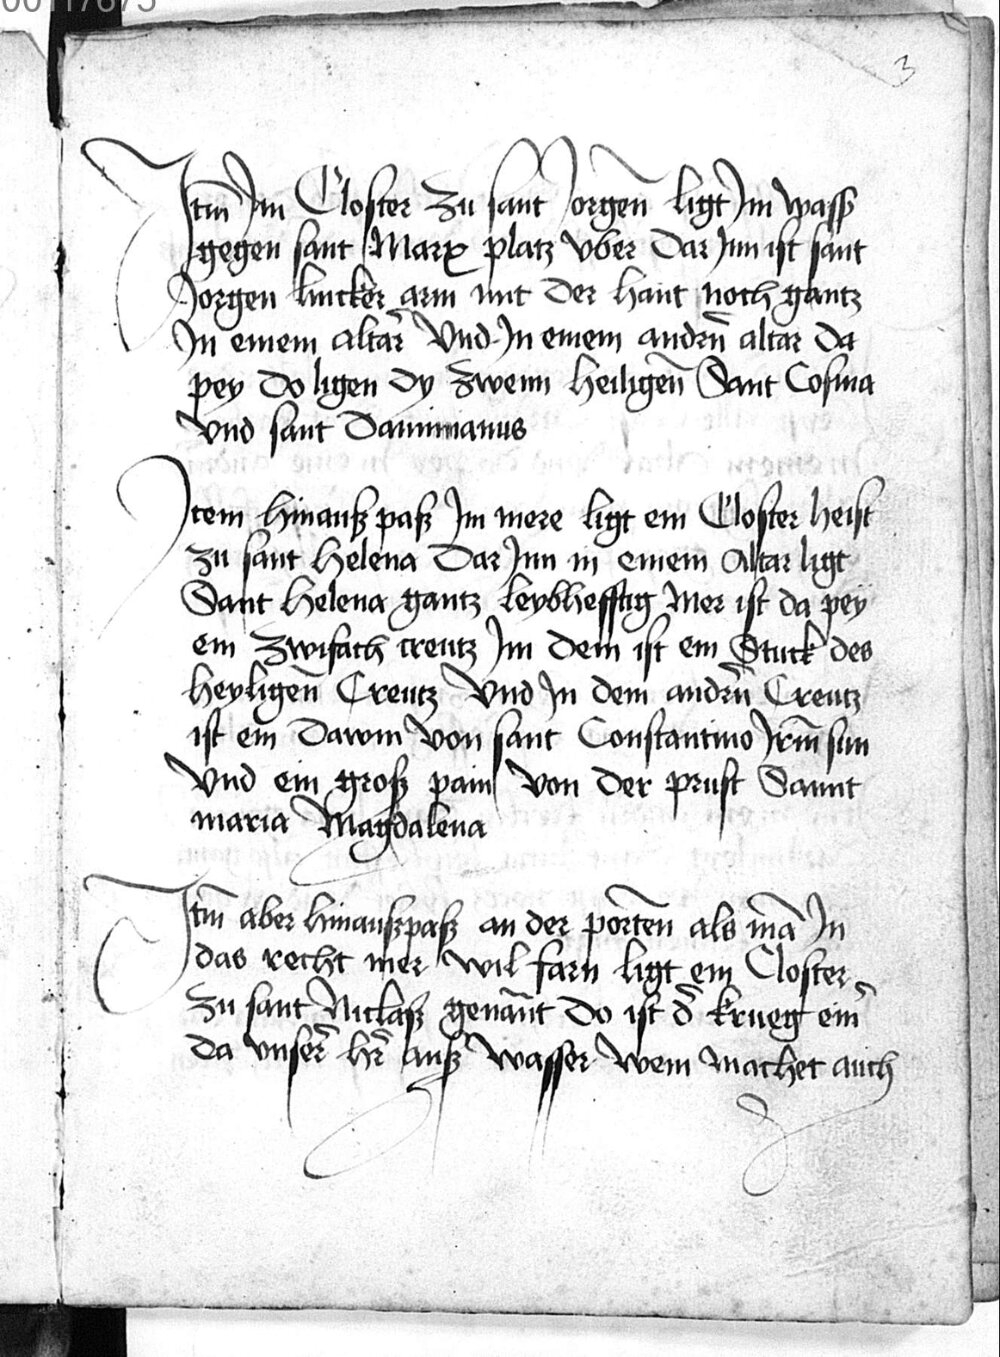 00117675
3
Itm̄ Im Closter zu sant Jorgen̄ ligt Im wasß
gegen sant Marx platz vber Dar Inn ist sant
Jorgen lincker arm mit der haut noch gantz
In einem altar Vnd In einem andrn̄ altar da
pey do ligen dy zwenn heiligen̄ Sant Cosma
vnd sant Damianus
Item hinauß paß Im mere ligt ein Closter heist
zu sant Helena Dar Inn in einem Altar ligt
Sant Helena gantz leybhefftig Mer ist da pey
ein zwifach creutz Im dem ist ein Stuck des
heyligen̄ Creutz Vnd In dem andrn̄ Creutz
ist ein Dawm von sant Constantino Irm̄ sun
Vnd ein groß pain von der prust Sannt
maria Magdalena
Itm̄ aber hinaußpaß an der porten̄ als mā In
das recht mer wil farn ligt ein Closter
zu sant Niclaß genānt Do ist d̄ krueg ein̄
da vnser̄ hr̄ auß wasser wein machet auch